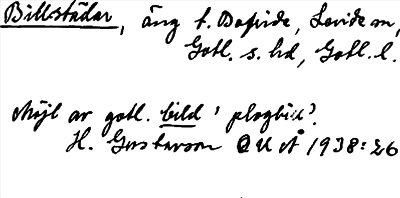 Billstädar, äng t. Bofride, Levide sn,
Gotl. s. hd, Gotl. l.
Möjl av gotl. bild 'plogbill'.
H. Gustavson OUÅ 1938:26